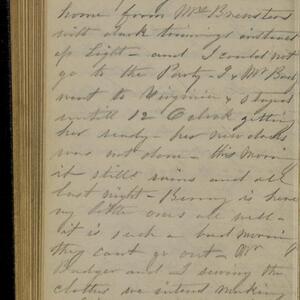 home from Mrs Brewsters
with dark trimings instead
of Light - and I could not
go to the Party - I & Mr
went to Virginia & stayed
untill 12 Oclock getting
her ready - her new dress
was not done - this Morn
it still rains and all
last night - Benny is here
my little ones all well -
it is such a bad Morn
they cant go out - Mr
Badger and I sewing the
clothes we intend making